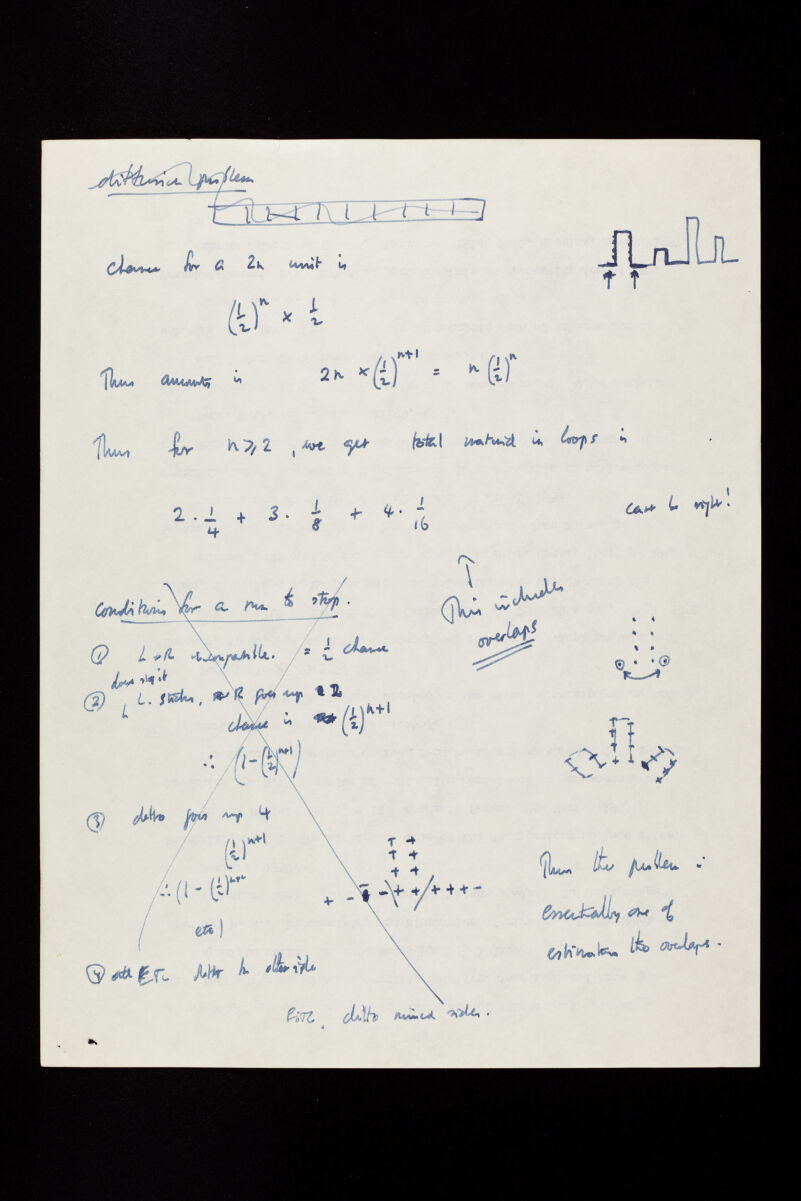 diffusion problem
chance for a 2n unit is
(1/2)^n × 1/2
Thus amounts is 2n × (1/2)^{n+1} = n (1/2)^n
Thus for n ⩾ 2, we get total material in loops is
2 · 1/4 + 3 · 1/8 + 4 · 1/16
can't be right!
↑
This includes
overlaps
conditions for a run to stop.
① L & R incompatible. = 1/2 chance
② L. sticks, R goes up 2
chance is (1/2)^{n+1}
∴ (1 - (1/2)^{n+1})
③ ditto goes up 4
(1/2)^{n+1}
∴ (1 - (1/2)
etc)
+ - - - + + + + + -
④ ETC ditto for other side
Etc, ditto mixed sides.
Thus the problem is
essentially one of
estimating the overlaps.